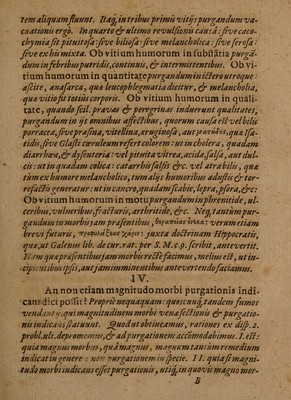 tem aliquam fluunt. Itaq́, in tribus primis vitijs purgandum va-
cuationis ergò. In quarto & ultimo revulsionis causâ: sive caco-
chymia sit pituitosa: sive biliosa: sive melancholica: sive serosa:
sive ex his mixta. Ob vitium humorum in substãtia purgã-
dum in febribus putridis, continuis, & intermittentibus. Ob vi-
tium humorum in quantitate purgandum in ictero utroque:
ascite, anasarca, quæ leucophlegmatia dicitur, & melancholia,
quæ vitio fit totius corporis. Ob vitium humorum in quali-
tate, quando scil. pravas & peregrinas induerunt qualitates,
purgandum in ijs omnibus affectibus, quorum causa est vel bilis
porracea, sive prasina, vitellina, æruginosa, aut quæ Isa-
tidis, sive Glasti cœruleum refert colorem: ut in cholera, quadam
diarrhœa, & dysenteria: vel pituita vitrea, acida, salsa, aut dul-
cis: ut in quadam colica: catarrhis salsis &c. vel atra bilis, quæ
tùm ex humore melancholico, tum alijs humoribus adustis & tor-
refactis generatur: ut in cancro, quadam scabie, lepra, psora, &c:
Ob vitium humorum in motu purgandum in phrenitide, ul-
ceribus, vulneribus, fracturis, arthritide, &c. Neq́, tantùm pur-
gandum in morbis jam præsentibus, verùm etiam
brevi futuris, juxta doctrinam Hippocratis,
quæ, ut Galenus lib. de cur. rat. per S. M. c. 9. scribit, antevertit.
Nam quæ præsentibus jam morbis rectè facimus, melius est, ut in-
cipientibus ipsis, aut jam imminentibus antevertendo faciamus.
IV.
An non etiam magnitudo morbi purgationis indi-
cans dici possit? Propriè nequaquam: quoscunq́, tandem fumos
vendant ij, qui magnitudinem morbi venæ sectionis & purgatio-
nis indicans statuunt. Quod ut obtineamus, rationes ex disp. 2.
probl. ult. depromemus, & ad purgationem accõmodabimus. I. est:
quia magnus morbus, quâ magnus, magnum tantùm remedium
indicat in genere: non purgationem in specie. II. quia si magni-
tudo morbi indicans esset purgationis, utiq́, in quovis magno mor-
B